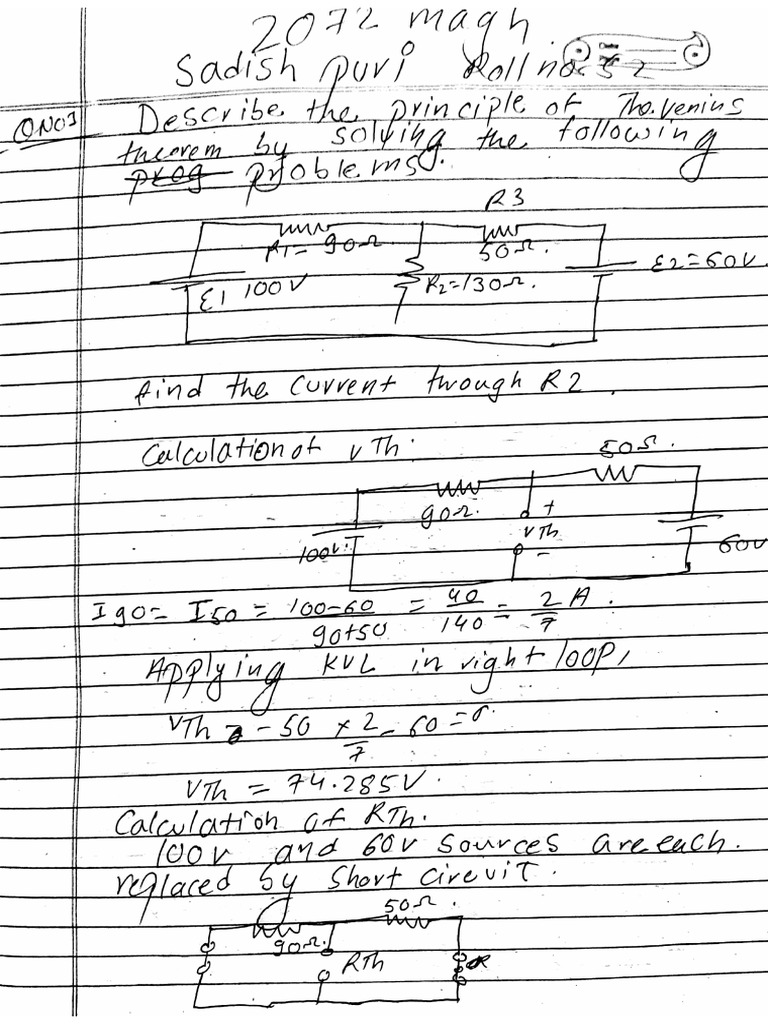 2072 magh
Sadish puri Roll no. 52
QNO3 Describe the principle of Thevenius
theorem by solving the following
problems.
R3
R1 = 90Ω
50Ω.
ε1 100V
R2=130Ω.
ε2=60V.
find the current through R2.
Calculation of VTh:
50Ω.
90Ω.
+
VTh
-
100V.
60V
I90 = I50 = 100-60/90+50 = 40/140 = 2/7 A.
Applying KVL in right loop,
VTh - 50 × 2/7 - 60 = 0.
VTh = 74.285V.
Calculation of RTh.
100V and 60V sources are each.
replaced by short circuit.
50Ω.
90Ω.
RTh